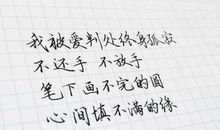 我被爱判处终身孤寂
不还手 不放手
笔下画不完的圆
心间填不满的缘